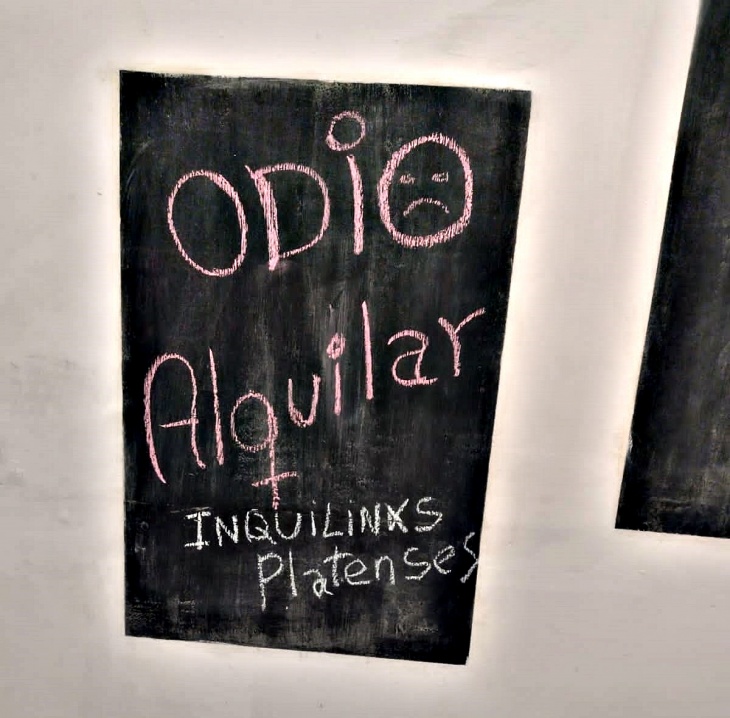 ODiO
Alquilar
INQUiLiNXS
Platenses